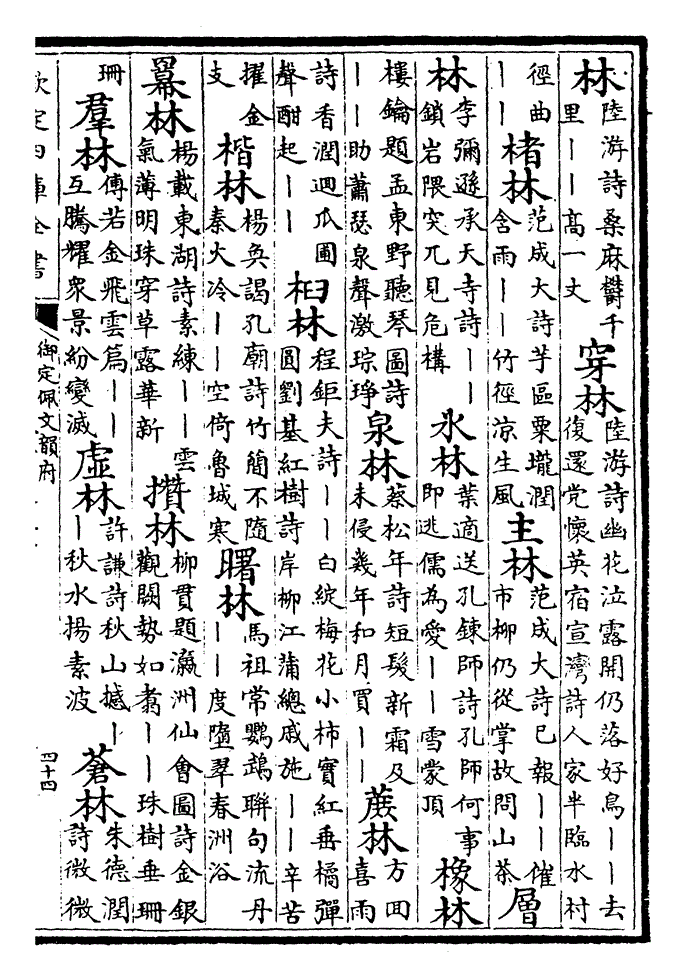 林陸游詩桑麻欝千里——高一丈穿林陸游詩幽花泣露開仍落好鳥——去復還党懷英宿宣灣詩人家半臨水村
徑曲——楮林范成大詩芋區粟壠潤含雨——竹徑凉生風主林范成大詩已報——催市柳仍從掌故問山茶層
林李彌遜承天寺詩——鎖岩隈突兀見危構氷林葉適送孔鍊師詩孔師何事即逃儒為愛——雪蒙頂橡林
樓鑰題孟東野聽琴圖詩——助蕭瑟泉聲激琮琤泉林蔡松年詩短髮新霜及未侵幾年和月買——蕨林方回喜雨
詩香潤迴瓜圃聲酣起——桕林程鉅夫詩——白綻梅花小柿實紅垂橘彈圓劉基紅樹詩岸柳江蒲總戚施——辛苦
擢金支楷林楊奐謁孔廟詩竹簡不隨秦火冷——空倚魯城寒曙林馬祖常鸚鵡聯句流丹——度墮翠春洲浴
羃林楊載東湖詩素練——雲氣薄明珠穿草露華新攢林柳貫題瀛洲仙會圖詩金銀觀闕勢如翥——珠樹垂珊
珊羣林傅若金飛雲篇——互騰耀衆景紛變滅虛林許謙詩秋山撼——秋水揚素波蒼林朱德潤詩微微
欽定四庫全書
御定佩文韻府
四十四